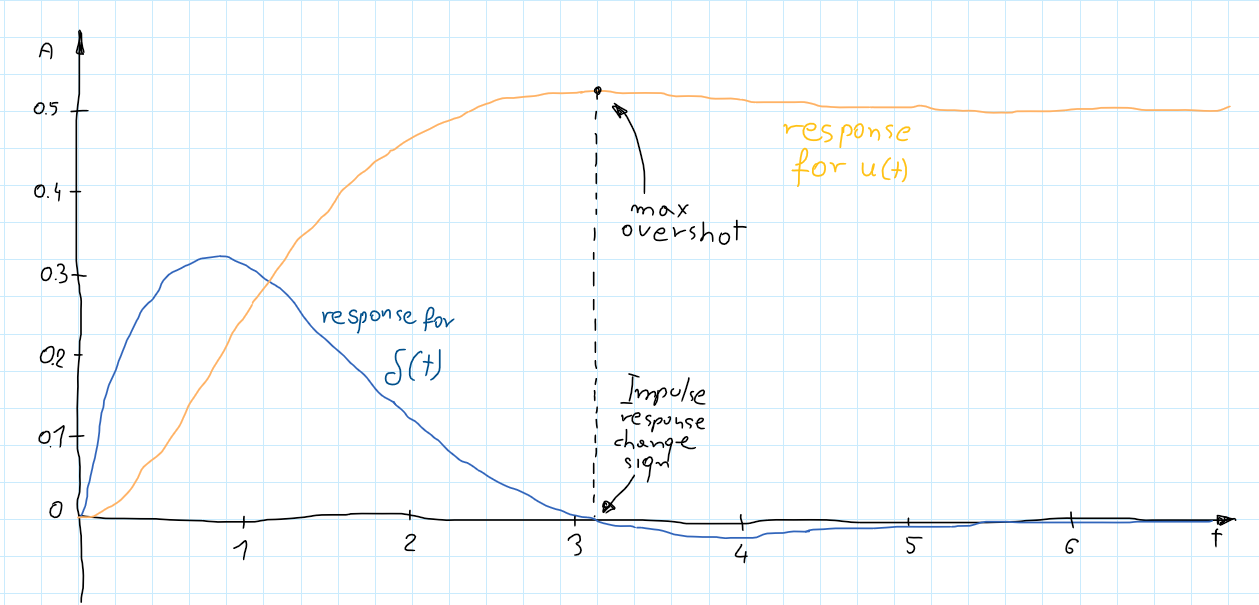 A
0.5
0.4
0.3
0.2
0.1
0
1
2
3
4
5
6
t
response
for u(t)
max
overshot
response for
δ(t)
Impulse
response
change
sign